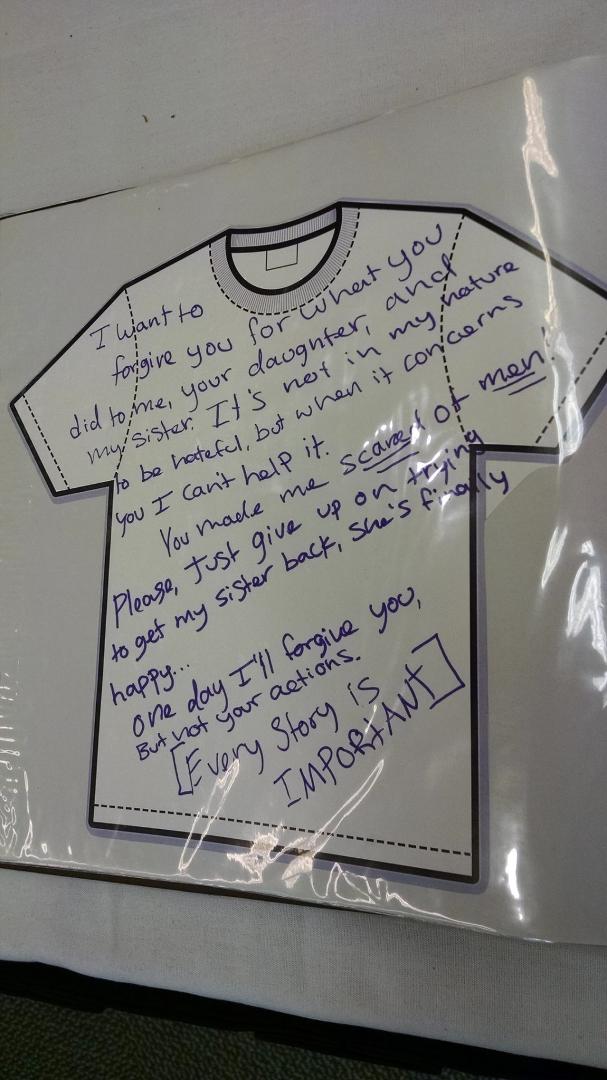 I want to
forgive you for what you
did to me, your daughter, and
my sister. It's not in my nature
to be hateful, but when it concerns
you I can't help it.
You made me scared of men!
Please, just give up on trying
to get my sister back, she's finally
happy...
one day I'll forgive you,
But not your actions.
[Every Story is
IMPORTANT]